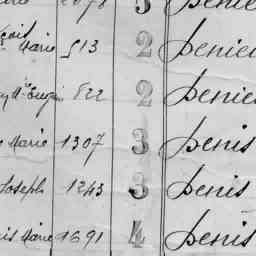 2078 5 Denie
çois Marie 513 2 Denie
Eugè 822 2 Denie
Marie 1307 3 Denis
Joseph 1243 3 Denis
is Marie 1691 4 Denis